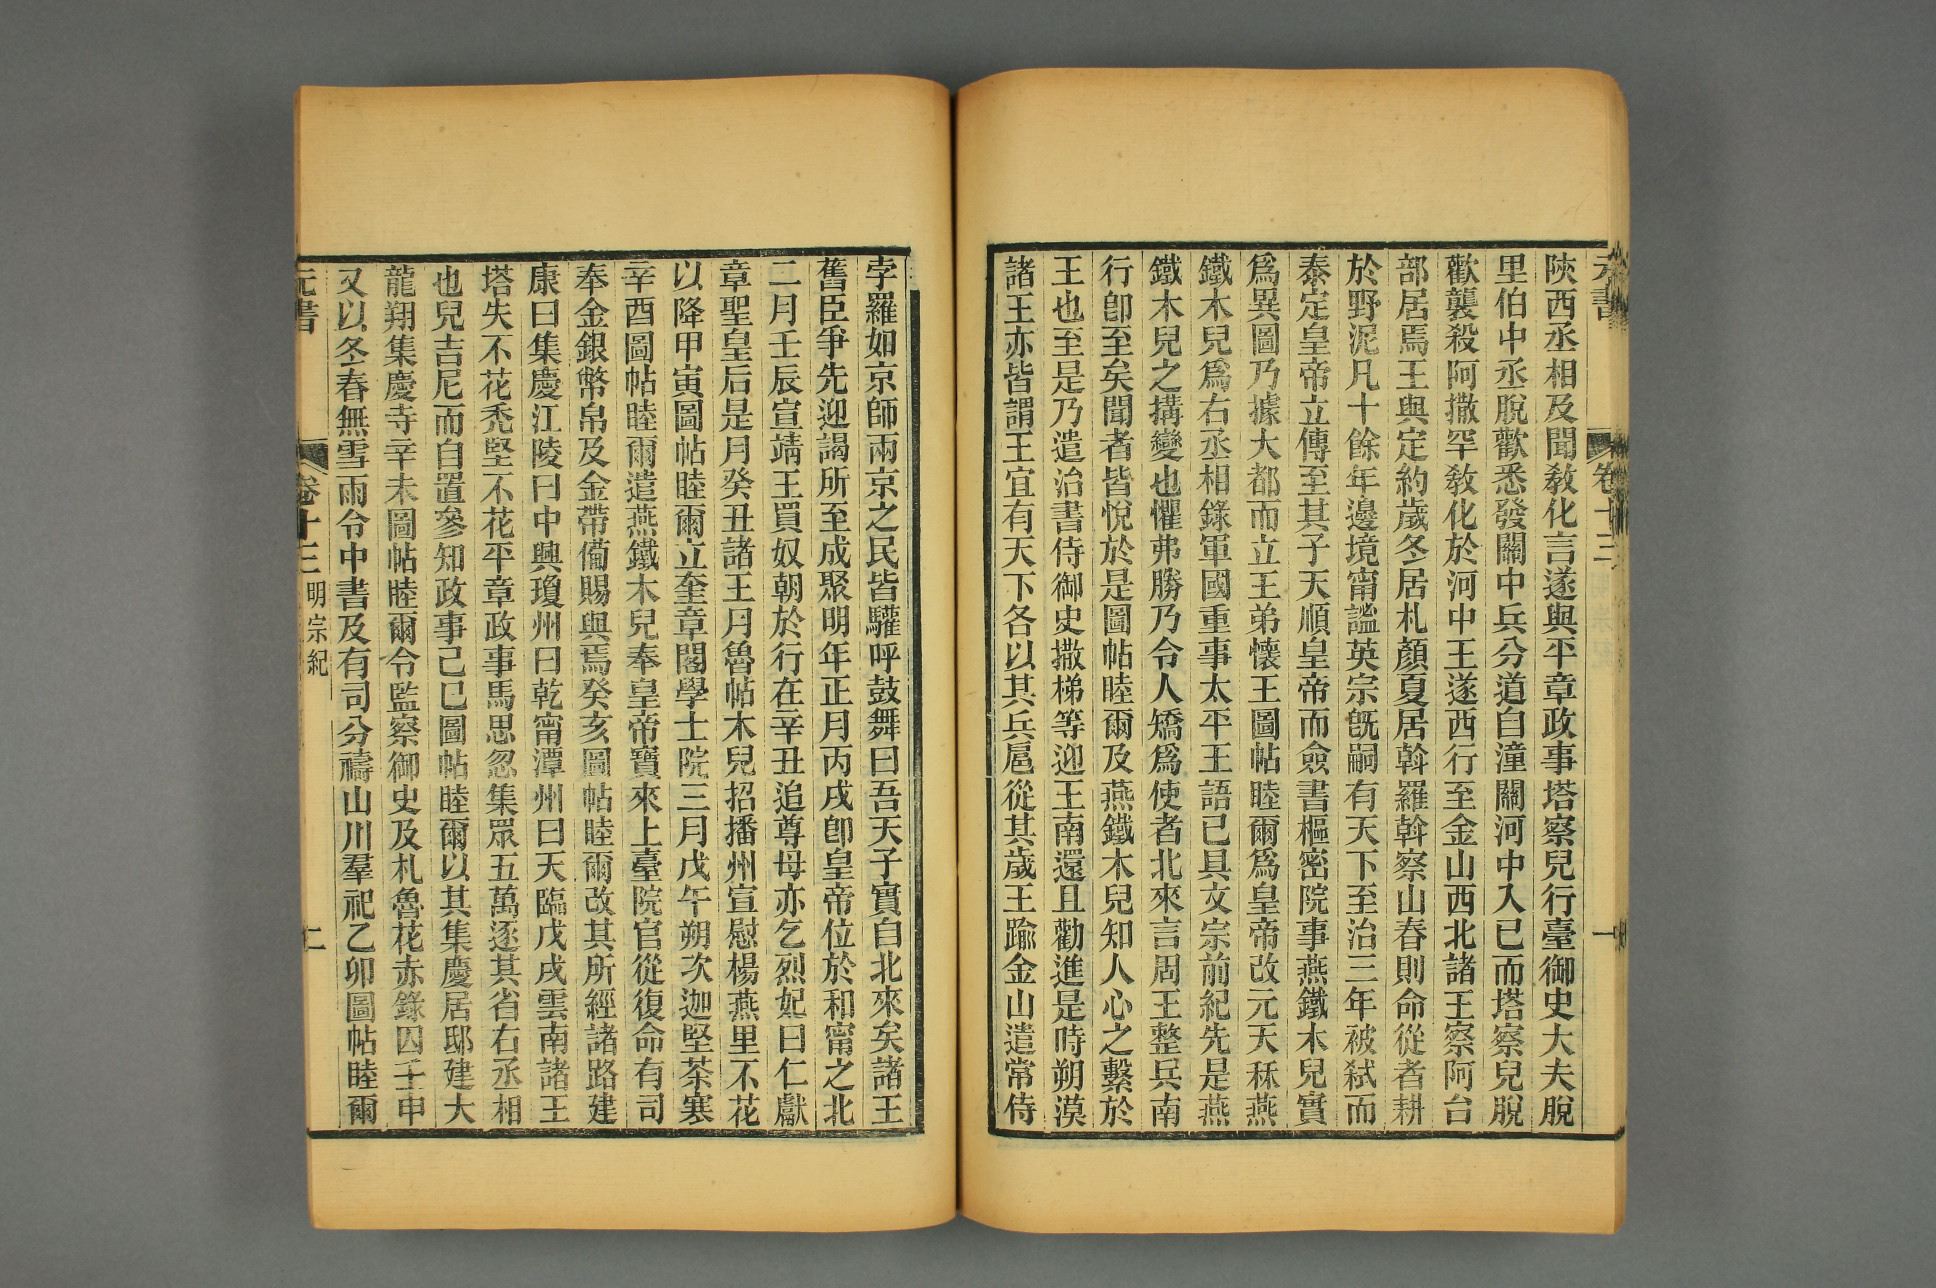 元書
卷十三
一
陝西丞相及聞敎化言遂與平章政事塔察兒行臺御史大夫脫
里伯中丞脫歡悉發關中兵分道自潼關河中入已而塔察兒脫
歡襲殺阿撒罕敎化於河中王遂西行至金山西北諸王察阿台
部居焉王與定約歲冬居札顏夏居斡羅斡察山春則命從者耕
於野泥凡十餘年邊境甯謐英宗旣嗣有天下至治三年被弒而
泰定皇帝立傳至其子天順皇帝而僉書樞密院事燕鐵木兒實
爲異圖乃據大都而立王弟懷王圖帖睦爾爲皇帝改元天秝燕
鐵木兒爲右丞相錄軍國重事太平王語已具文宗前紀先是燕
鐵木兒之搆變也懼弗勝乃令人矯爲使者北來言周王整兵南
行卽至矣聞者皆悅於是圖帖睦爾及燕鐵木兒知人心之繫於
王也至是乃遣治書侍御史撒梯等迎王南還且勸進是時朔漠
諸王亦皆謂王宜有天下各以其兵扈從其歲王踰金山遣常侍
孛羅如京師兩京之民皆驩呼鼓舞曰吾天子實自北來矣諸王
舊臣爭先迎謁所至成聚明年正月丙戌卽皇帝位於和甯之北
二月壬辰宣靖王買奴朝於行在辛丑追尊母亦乞烈妃曰仁獻
章聖皇后是月癸丑諸王月魯帖木兒招播州宣慰楊燕里不花
以降甲寅圖帖睦爾立奎章閣學士院三月戊午朔次迦堅茶寒
辛酉圖帖睦爾遣燕鐵木兒奉皇帝寶來上臺院官從復命有司
奉金銀幣帛及金帶備賜與焉癸亥圖帖睦爾改其所經諸路建
康曰集慶江陵曰中興瓊州曰乾甯潭州曰天臨戊戌雲南諸王
塔失不花禿堅不花平章政事馬思忽集眾五萬逐其省右丞相
也兒吉尼而自置參知政事己巳圖帖睦爾以其集慶居邸建大
龍翔集慶寺辛未圖帖睦爾令監察御史及札魯花赤錄囚壬申
又以冬春無雪雨令中書及有司分禱山川羣祀乙卯圖帖睦爾
元書
卷十三 明宗紀
二